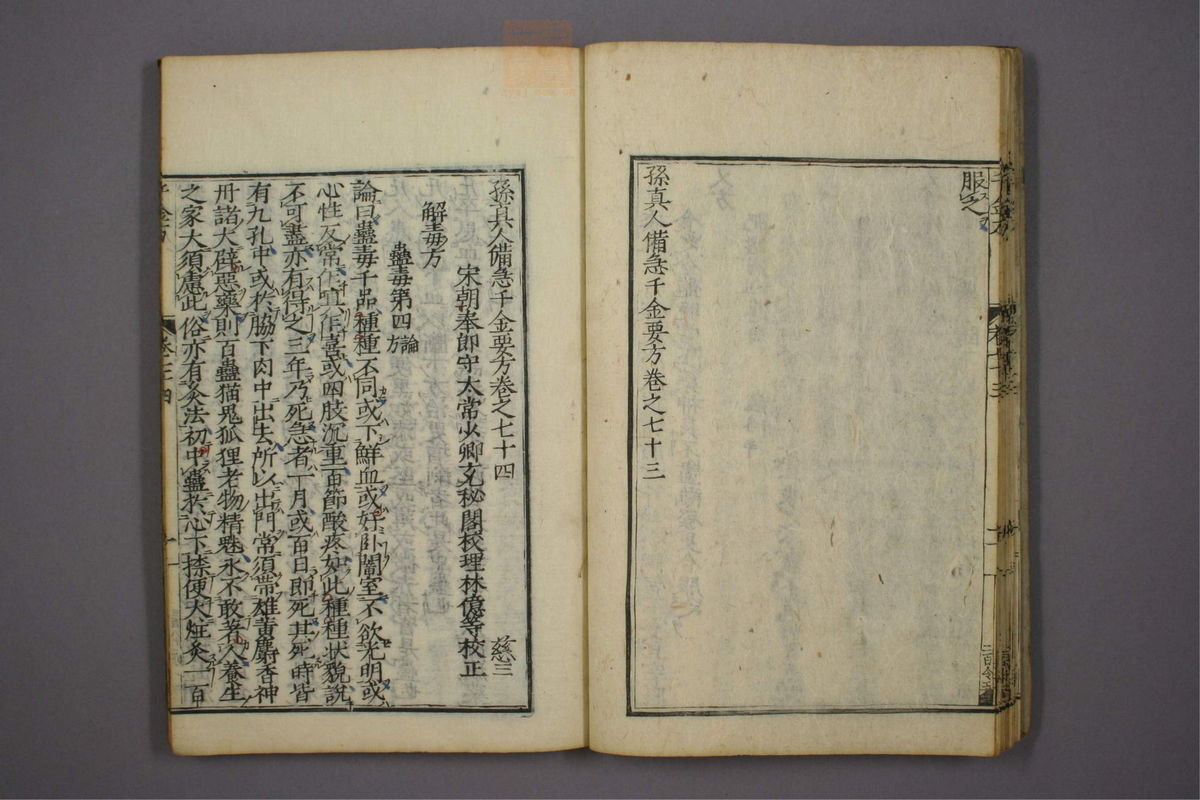 服之
孫真人備急千金要方卷之七十三
孫真人備急千金要方卷之七十四 慈三
宋朝奉郎守太常少卿充秘閣校理林億等校正
解毒方
蠱毒第四 論 方
論曰蠱毒千品種種不同或下鮮血或好卧闇室不欲光明或
心性反常乍嗔乍喜或四肢沉重百節酸疼如此種種状貌說
不可盡亦有得之三年乃死急者一月或百日即死其死時皆
有九孔中或於脇下肉中出去所以出門常須帶雄黄麝香神
丹諸大辟惡藥則百蠱猫鬼狐狸老物精魅永不敢著人養生
之家大須慮此俗亦有灸法初中蠱於心下捺便大炷灸一百